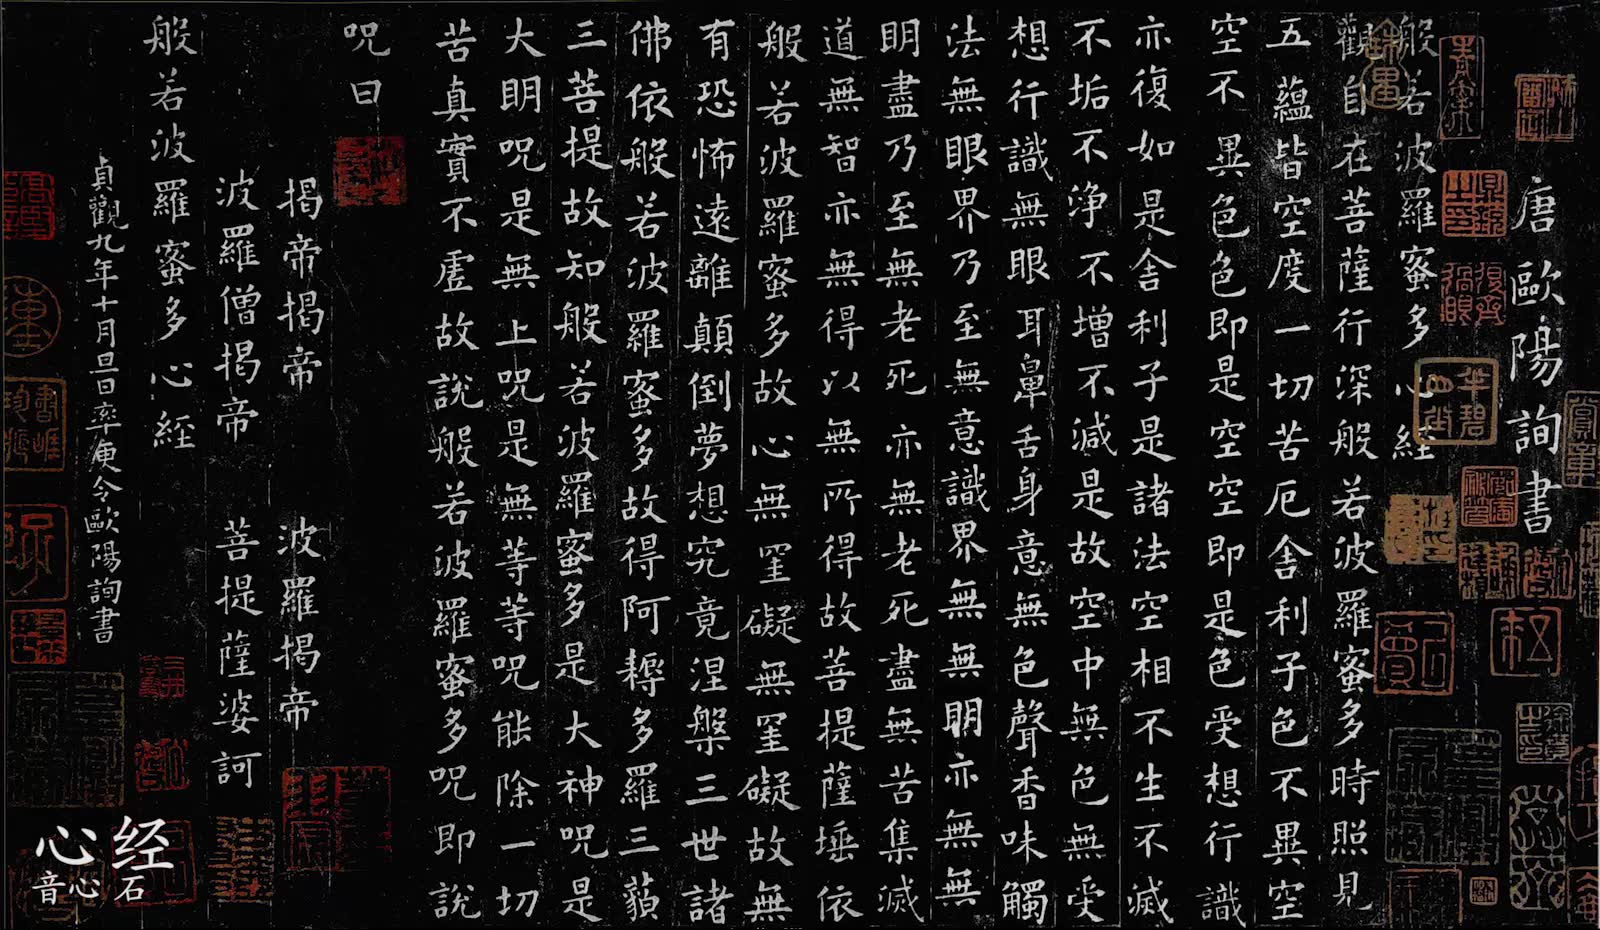 唐歐陽詢書
般若波羅蜜多心経
觀自在菩薩行深般若波羅蜜多時照見
五蘊皆空度一切苦厄舍利子色不異空
空不異色色即是空空即是色受想行識
亦復如是舍利子是諸法空相不生不滅
不垢不淨不增不減是故空中無色無受
想行識無眼耳鼻舌身意無色聲香味觸
法無眼界乃至無意識界無無明亦無無
明盡乃至無老死亦無老死盡無苦集滅
道無智亦無得以無所得故菩提薩埵依
般若波羅蜜多故心無罣礙無罣礙故無
有恐怖遠離顛倒夢想究竟涅槃三世諸
佛依般若波羅蜜多故得阿耨多羅三藐
三菩提故知般若波羅蜜多是大神呪是
大明呪是無上呪是無等等呪能除一切
苦真實不虛故說般若波羅蜜多呪即說
呪曰
揭帝揭帝 波羅揭帝
波羅僧揭帝 菩提薩婆訶
般若波羅蜜多心経
貞觀九年十月旦日率更令歐陽詢書
心经
音心石